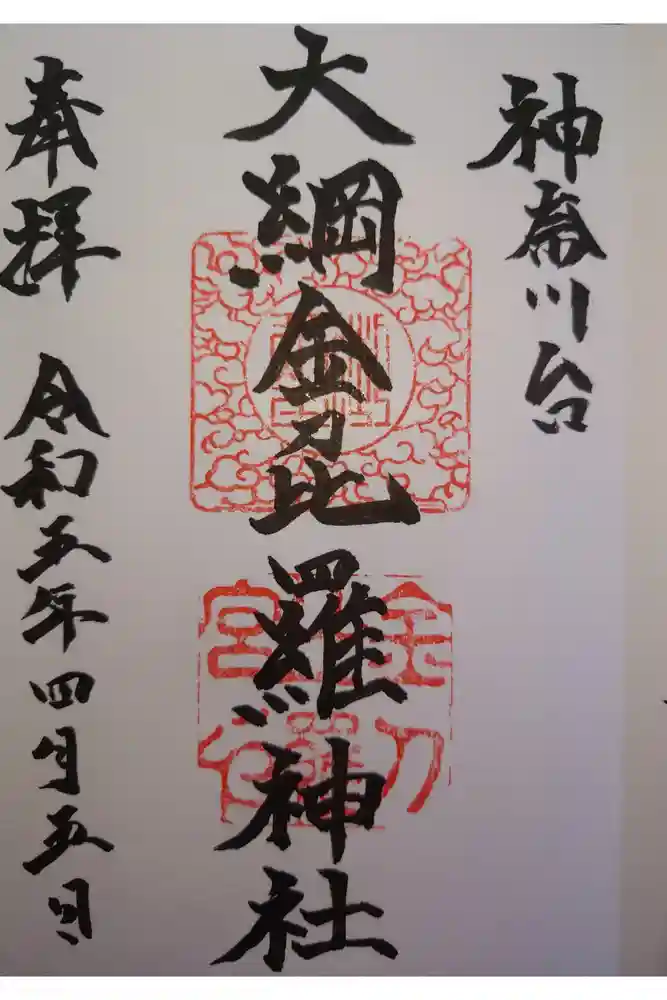 神奈川台
大綱金刀比羅神社
奉拝 令和五年四月五日